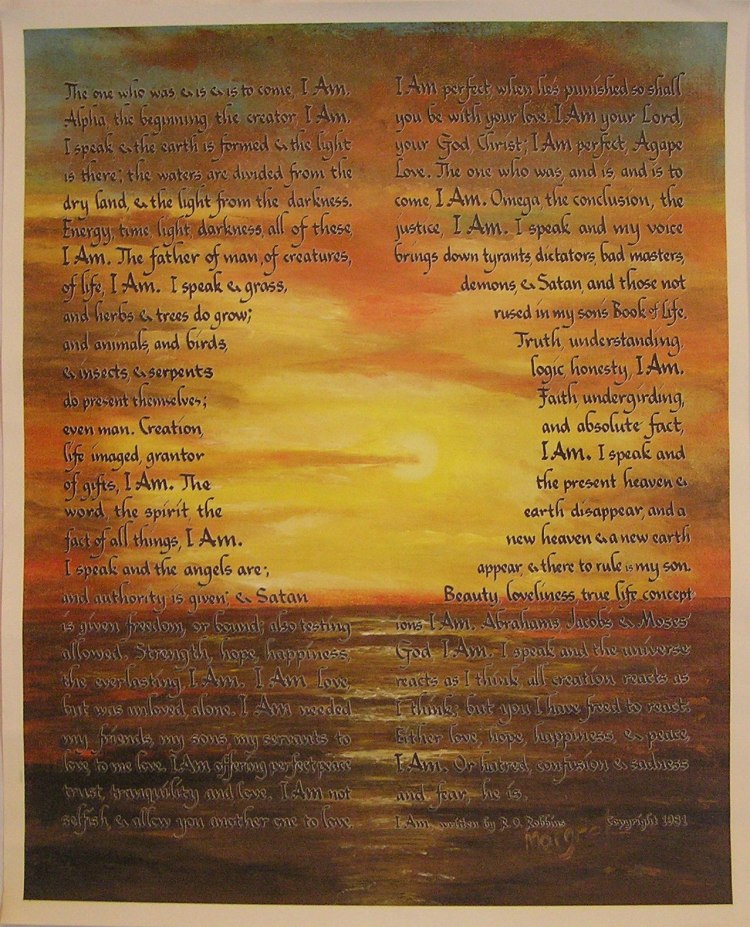 The one who was & is & is to come, I Am.
Alpha, the beginning the creator, I Am.
I speak & the earth is formed & the light
is there; the waters are divided from the
dry land, & the light from the darkness.
Energy, time, light, darkness, all of these
I Am. The father of man, of creatures,
of life, I Am. I speak & grass,
and herbs & trees do grow;
and animals, and birds,
& insects, & serpents
do present themselves;
even man. Creation,
life imaged, grantor
of gifts, I Am. The
word, the spirit the
fact of all things, I Am.
I speak and the angels are;
and authority is given; & Satan
is given freedom, or bound; also testing
allowed. Strength, hope, happiness,
the everlasting I Am. I Am love,
but was unloved alone. I Am needed
my friends, my sons, my servants to
love, to me love. I Am offering perfect peace
trust, tranquility and love. I Am not
selfish, & allow you another one to love.
I Am perfect, when lies punished so shall
you be with your love. I Am your Lord,
your God, Christ; I Am perfect, Agape
Love. The one who was, and is and is to
come, I Am. Omega, the conclusion, the
justice, I Am. I speak and my voice
brings down tyrants, dictators, bad masters,
demons, & Satan, and those not
rused in my sons Book of Life.
Truth, understanding,
logic, honesty, I Am.
Faith undergirding,
and absolute fact,
I Am. I speak and
the present heaven &
earth disappear, and a
new heaven & a new earth
appear, & there to rule is my son.
Beauty, loveliness, true life concept
ions I Am. Abrahams, Jacobs & Moses'
God I Am. I speak and the universe
reacts as I think, all creation reacts as
I think; but you I have freed to react.
Either love, hope, happiness & peace,
I Am. Or hatred, confusion & sadness
and fear, he is.
I Am, written by R.O. Robbins Copyright 1981